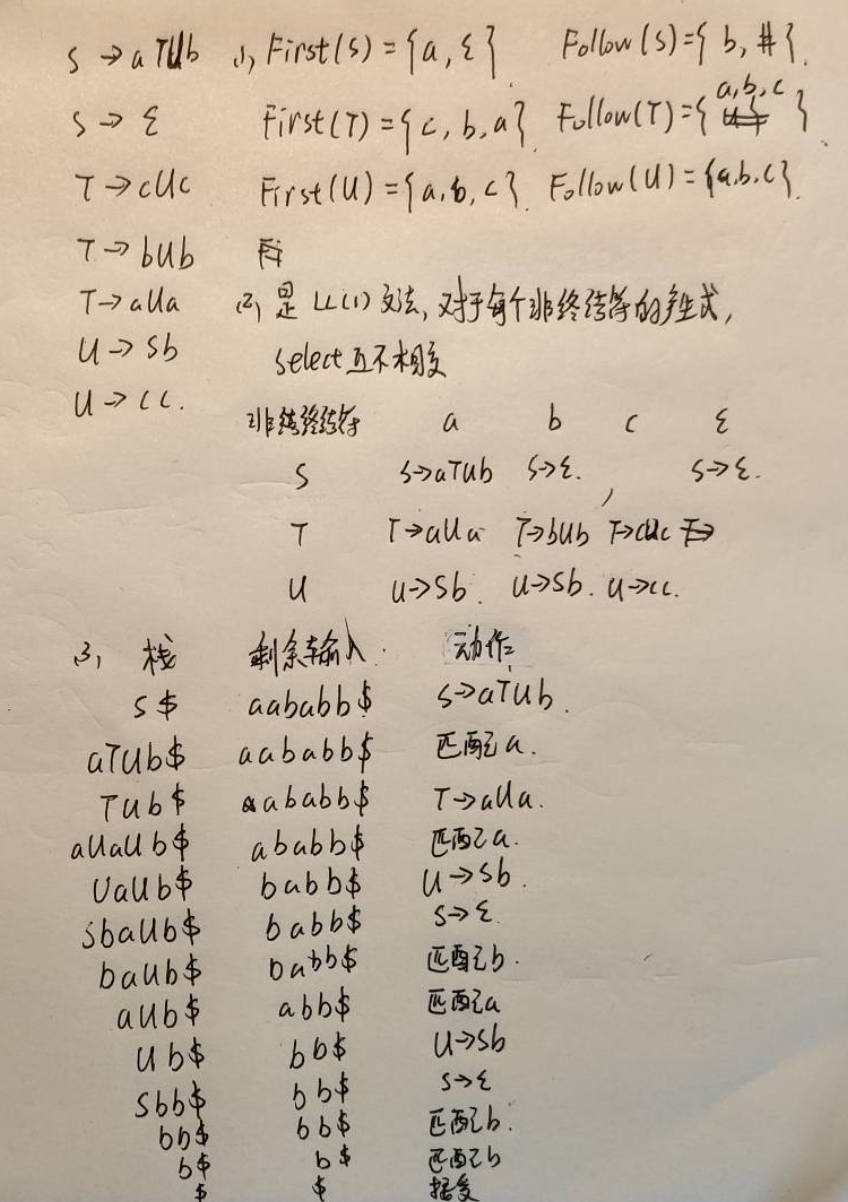 S → aTUb (1) First(S) = {a, ε} Follow(S) = {b, #}.
S → ε First(T) = {c, b, a}. Follow(T) = {a, b, c}
T → cUc First(U) = {a, b, c}. Follow(U) = {a, b, c}.
T → bUb
T → aUa (2) 是 LL(1) 文法, 对于每个非终结符的产生式,
U → Sb select 互不相交
U → cc.
非终结符 a b c ε
S S→aTUb S→ε. S→ε.
T T→aUa T→bUb T→cUc
U U→Sb. U→Sb. U→cc.
(3) 栈 剩余输入 动作
S$ aababb$ S→aTUb.
aTUb$ aababb$ 匹配a.
TUb$ ababb$ T→aUa.
aUaUb$ ababb$ 匹配a.
UaUb$ babb$ U→Sb.
SbaUb$ babb$ S→ε
baUb$ babb$ 匹配b.
aUb$ abb$ 匹配a
Ub$ bb$ U→Sb
Sbb$ bb$ S→ε
bb$ bb$ 匹配b.
b$ b$ 匹配b
$ $ 接受